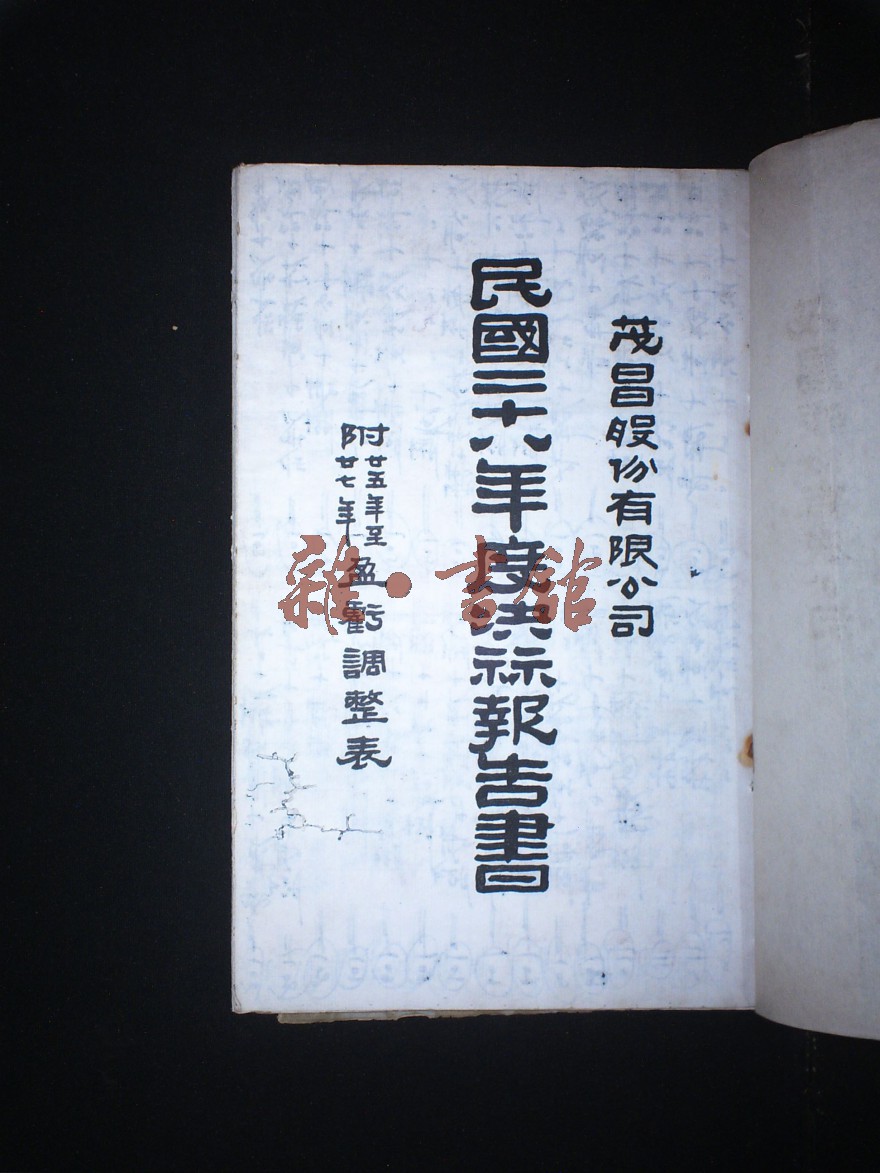 茂昌股份有限公司
民國二十六年度決祘報告書
附廿五年至廿七年盈虧調整表
雜·書舘